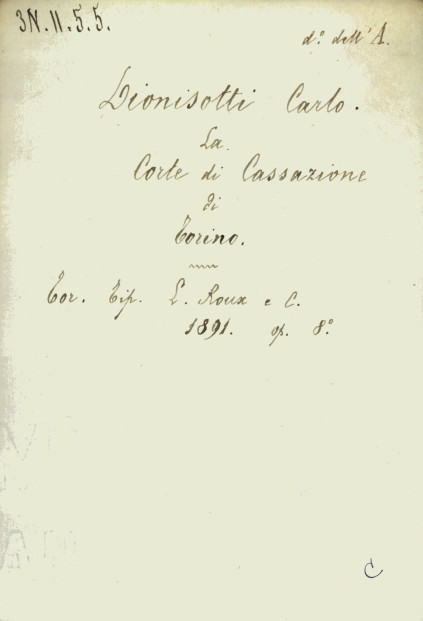 3N.11.5.5.
d.º dell'A.
Dionisotti Carlo.
La
Corte di Cassazione
di
Torino.
Tor. Tip. L. Roux e C.
1891. op. 8.º
C